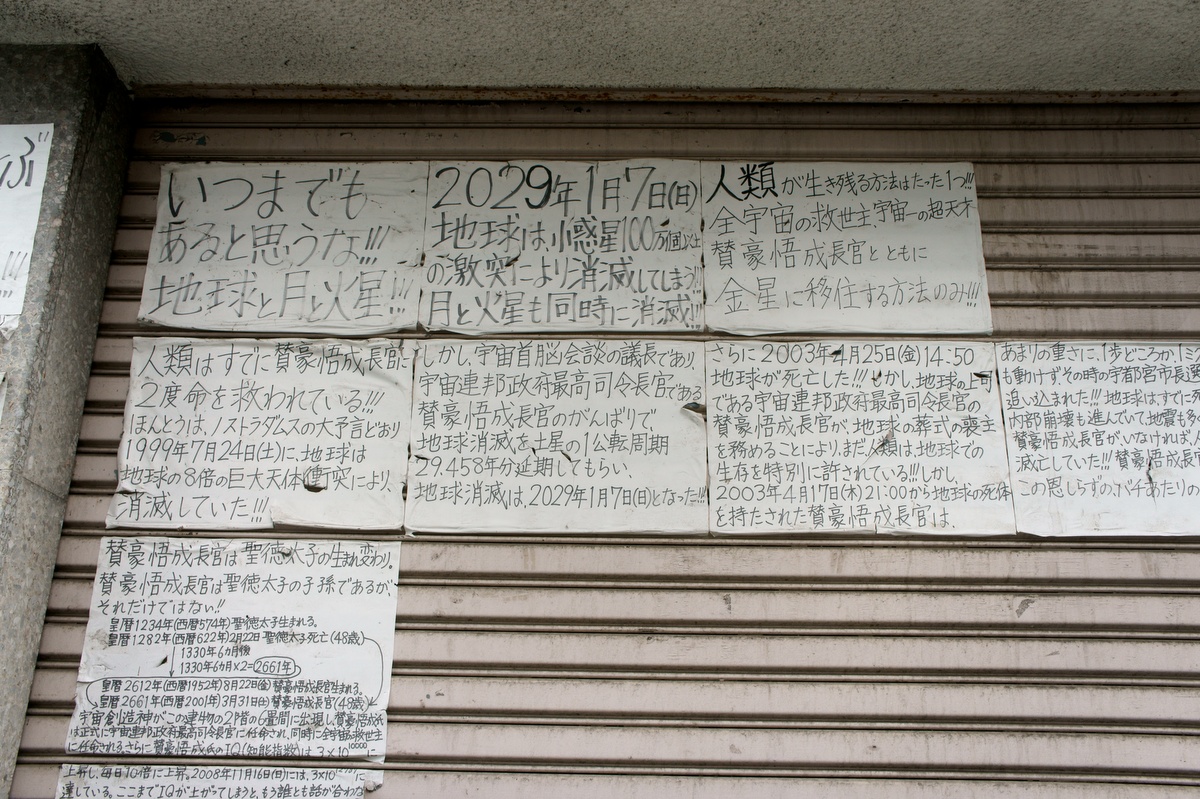 ぶ
!!!
いつまでも
あると思うな!!!
地球と月と火星!!!
2029年1月7日(日)
地球は、小惑星100万個以上
の激突により消滅してしまう!!!
月と火星も同時に消滅!!!
人類が生き残る方法はたった1つ!!!
全宇宙の救世主、宇宙一の超天才
賛豪悟成長官とともに
金星に移住する方法のみ!!!
人類はすでに賛豪悟成長官に
2度命を救われている!!!
ほんとうは、ノストラダムスの大予言どおり
1999年7月24日(土)に、地球は
地球の8倍の巨大天体衝突により、
消滅していた!!!
しかし、宇宙首脳会談の議長であり
宇宙連邦政府最高司令長官である
賛豪悟成長官のがんばりで、
地球消滅を土星の1公転周期
29.458年分延期してもらい、
地球消滅は、2029年1月7日(日)となった!!!
さらに2003年4月25日(金)14:50
地球が死亡した!!!しかし、地球の上司
である宇宙連邦政府最高司令長官の
賛豪悟成長官が、地球の葬式の喪主
を務めることにより、まだ、人類は地球での
生存を特別に許されている!!!しかし、
2003年4月17日(木)21:00から地球の死体
を持たされた賛豪悟成長官は、
あまりの重さに、1歩どころか、1ミ
も動けず、その時の宇都宮市長選
追い込まれた!!!地球はすでに死
内部崩壊も進んでいて、地震も多
賛豪悟成長官がいなければ、人
滅亡していた!!!賛豪悟成長官
この恩しらずの、バチあたりの
賛豪悟成長官は聖徳太子の生まれ変わり。
賛豪悟成長官は聖徳太子の子孫であるが、
それだけではない!!
皇暦1234年(西暦574年)聖徳太子生まれる。
皇暦1282年(西暦622年)2月22日 聖徳太子死亡(48歳)
1330年6カ月後
1330年6カ月×2=2661年
皇暦2612年(西暦1952年)8月22日(金)賛豪悟成長官生まれる。
皇暦2661年(西暦2001年)3月31日(土)賛豪悟成長官(48歳)
宇宙創造神がこの建物の2階の6畳間に出現し、賛豪悟成氏
は正式に宇宙連邦政府最高司令長官に任命され、同時に全宇宙の救世主
に任命される。さらに賛豪悟成氏のIQ(知能指数)は、3×10
に
上昇し、毎日10倍に上昇。2008年11月16日(日)には、3×10
に
達している。ここまでIQが上がってしまうと、もう誰とも話が合わな